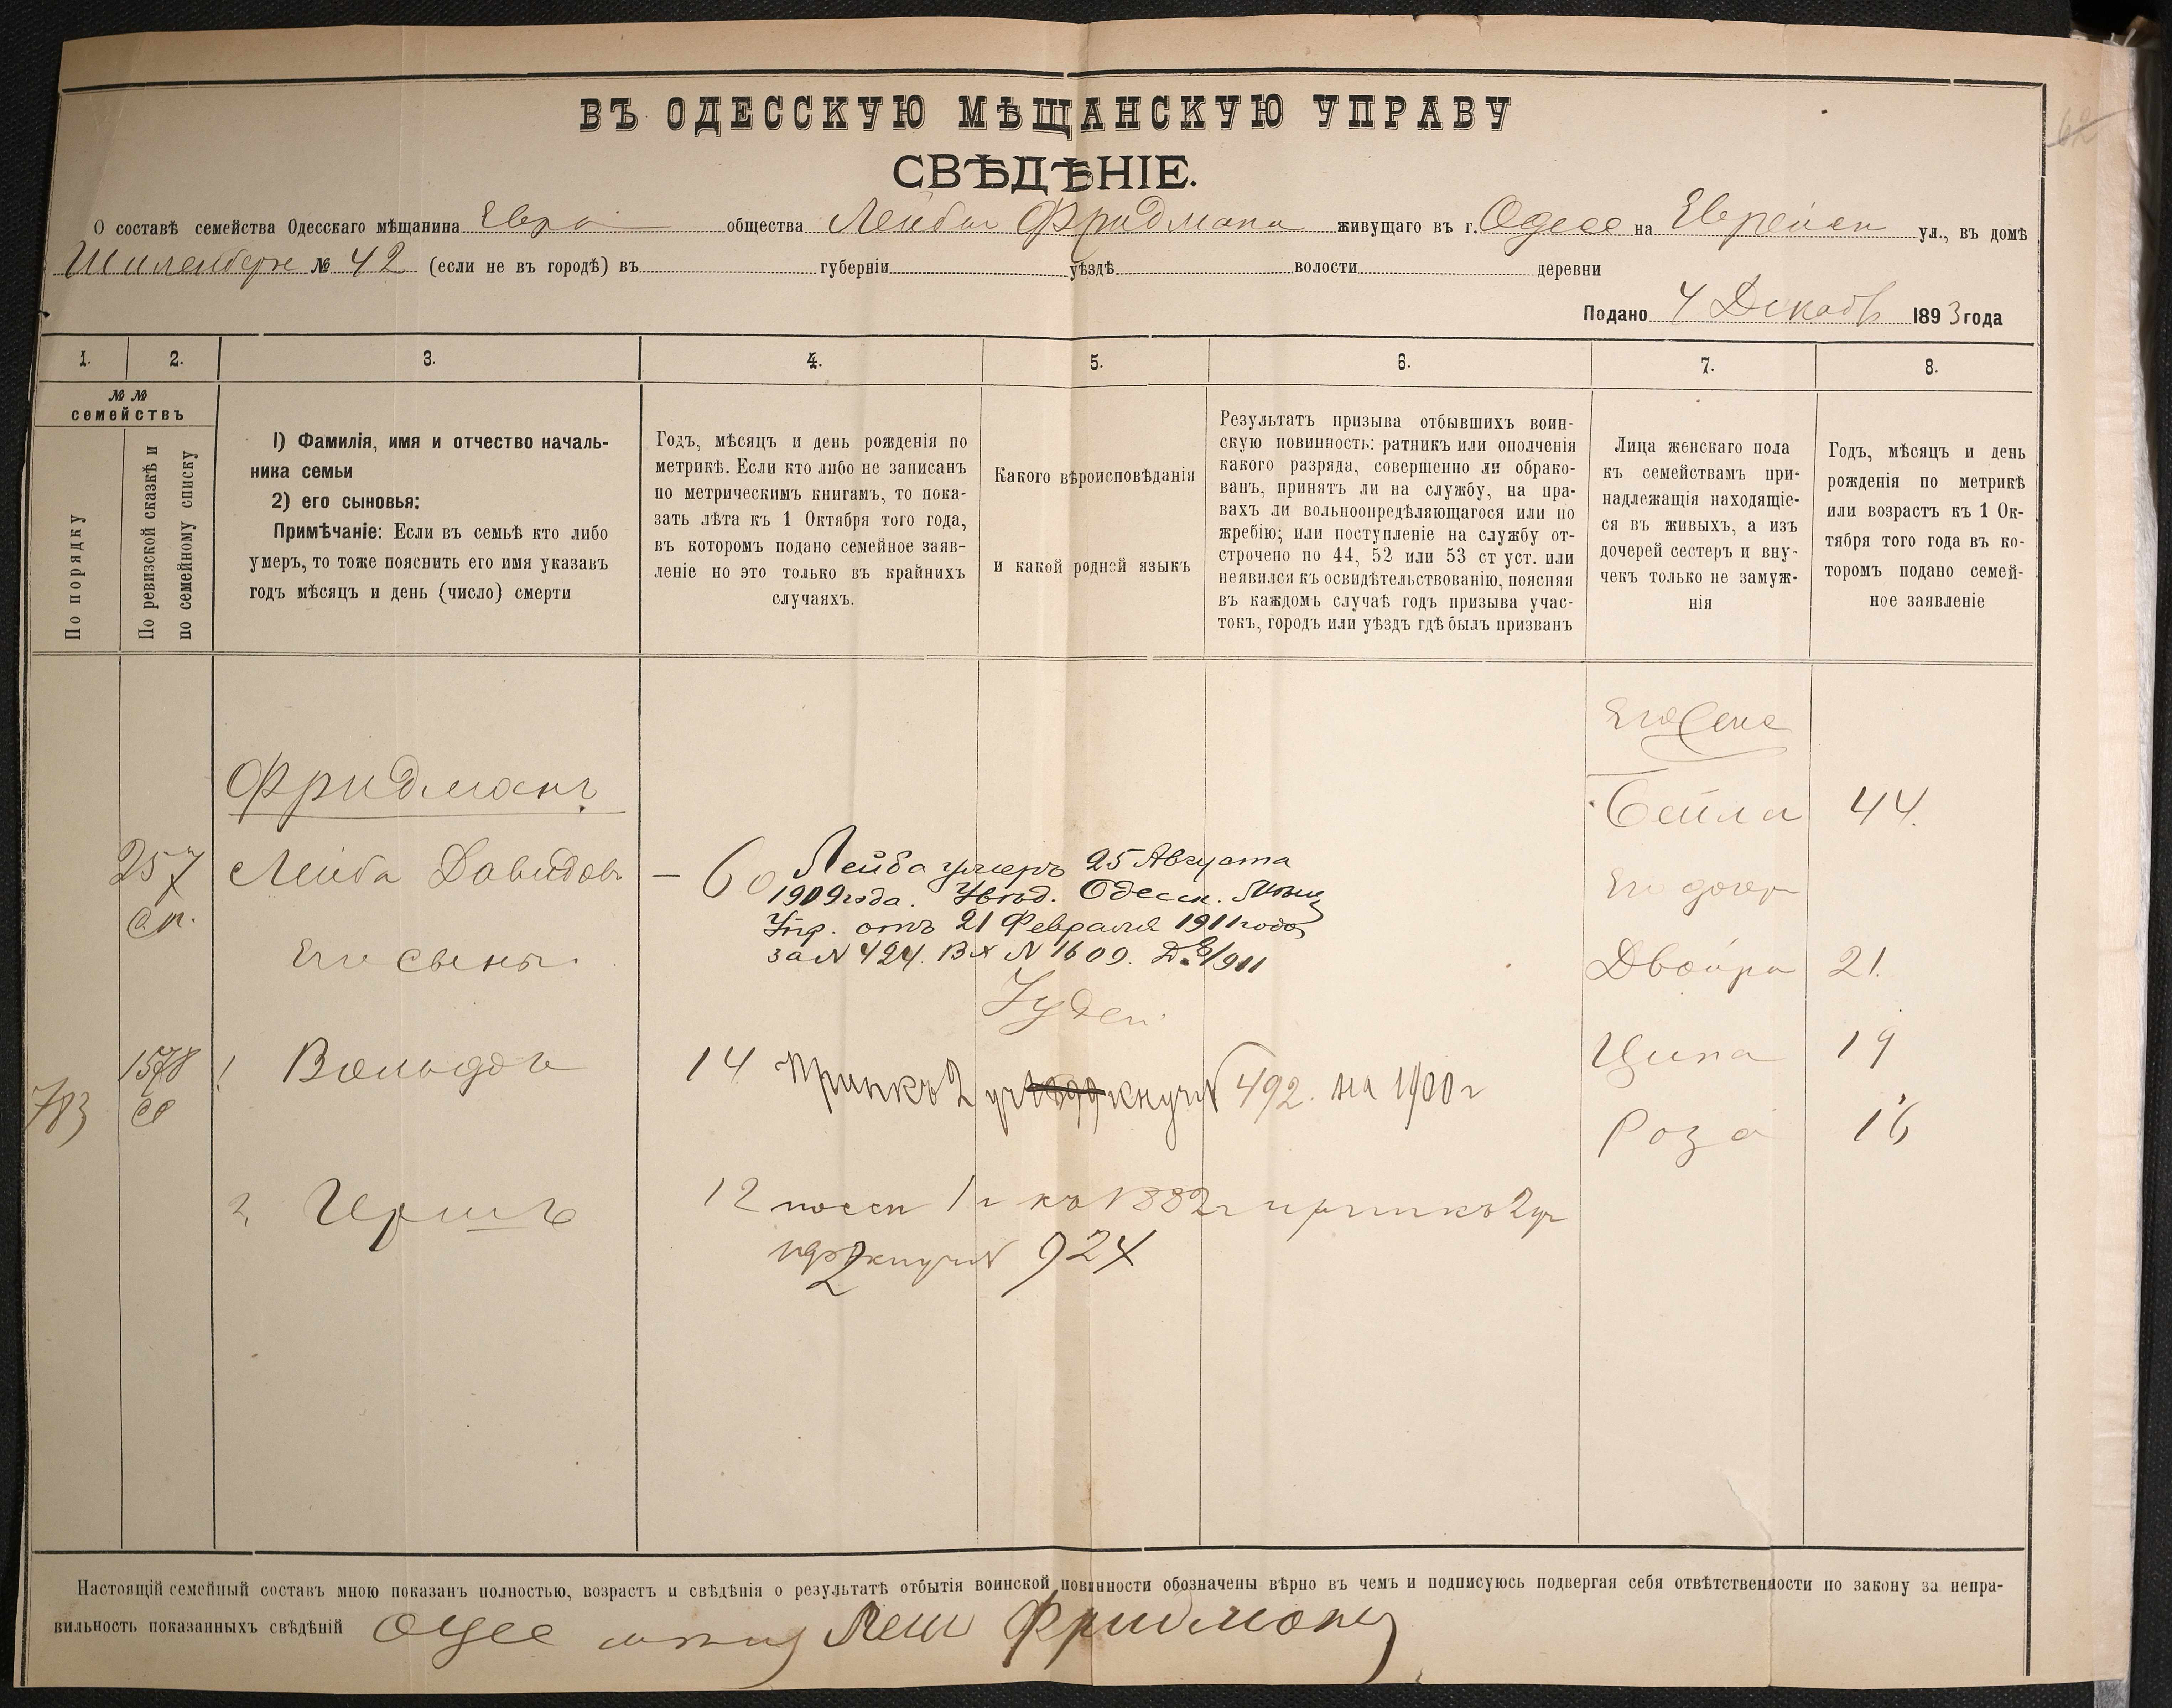 ВЪ ОДЕССКУЮ МѢЩАНСКУЮ УПРАВУ
СВѢДѢНІЕ.
О составѣ семейства Одесскаго мѣщанина Евр общества Лейбы Фридмана живущаго въ г. Одессе на Еврейск ул., въ домѣ
№ 42 (если не въ городѣ) въ губерніи уѣздѣ волости деревни
Подано 4 Декабр 1893 года
1. 2. 3. 4. 5. 6. 7. 8.
№ №
семействъ
По порядку
По ревизской сказкѣ и
по семейному списку
1) Фамилія, имя и отчество началь-
ника семьи
2) его сыновья:
Примѣчаніе: Если въ семьѣ кто либо
умеръ, то тоже пояснить его имя указавъ
годъ мѣсяцъ и день (число) смерти
Годъ, мѣсяцъ и день рожденія по
метрикѣ. Если кто либо не записанъ
по метрическимъ книгамъ, то пока-
зать лѣта къ 1 Октября того года,
въ которомъ подано семейное заяв-
леніе но это только въ крайнихъ
случаяхъ.
Какого вѣроисповѣданія
и какой родной языкъ
Результатъ призыва отбывшихъ воин-
скую повинность: ратникъ или ополченія
какого разряда, совершенно ли обрако-
ванъ, принятъ ли на службу, на пра-
вахъ ли вольноопредѣляющагося или по
жребію; или поступленіе на службу от-
строчено по 44, 52 или 53 ст уст. или
неявился къ освидѣтельствованію, поясняя
въ каждомъ случаѣ годъ призыва учас-
токъ, городъ или уѣздъ гдѣ былъ призванъ
Лица женскаго пола
къ семействамъ при-
надлежащія находящіе-
ся въ живыхъ, а изъ
дочерей сестеръ и вну-
чекъ только не замуж-
нія
Годъ, мѣсяцъ и день
рожденія по метрикѣ
или возрастъ къ 1 Ок-
тября того года въ ко-
торомъ подано семей-
ное заявленіе
Фридманъ
Бейла 44.
257 Лейба Давидовъ – 60 Лейба умеръ 25 Августа
1909 года. Увѣд. Одесск. Мѣщ
Упр. отъ 21 Февраля 1911 года
за N 424. Вх N 1609.
Его дочери
Его сыны
Двойра 21.
Иудей
1578 1 Вольфъ 14 492. на 1900 г
783
Ципа 19
Роза 16
2 Гершъ 12 1882 г
924
Настоящій семейный составъ мною показанъ полностью, возрастъ и свѣдѣнія о результатѣ отбытія воинской повинности обозначены вѣрно въ чемъ и подписуюсь подвергая себя отвѣтственности по закону за непра-
вильность показанныхъ свѣдѣній Фридманъ